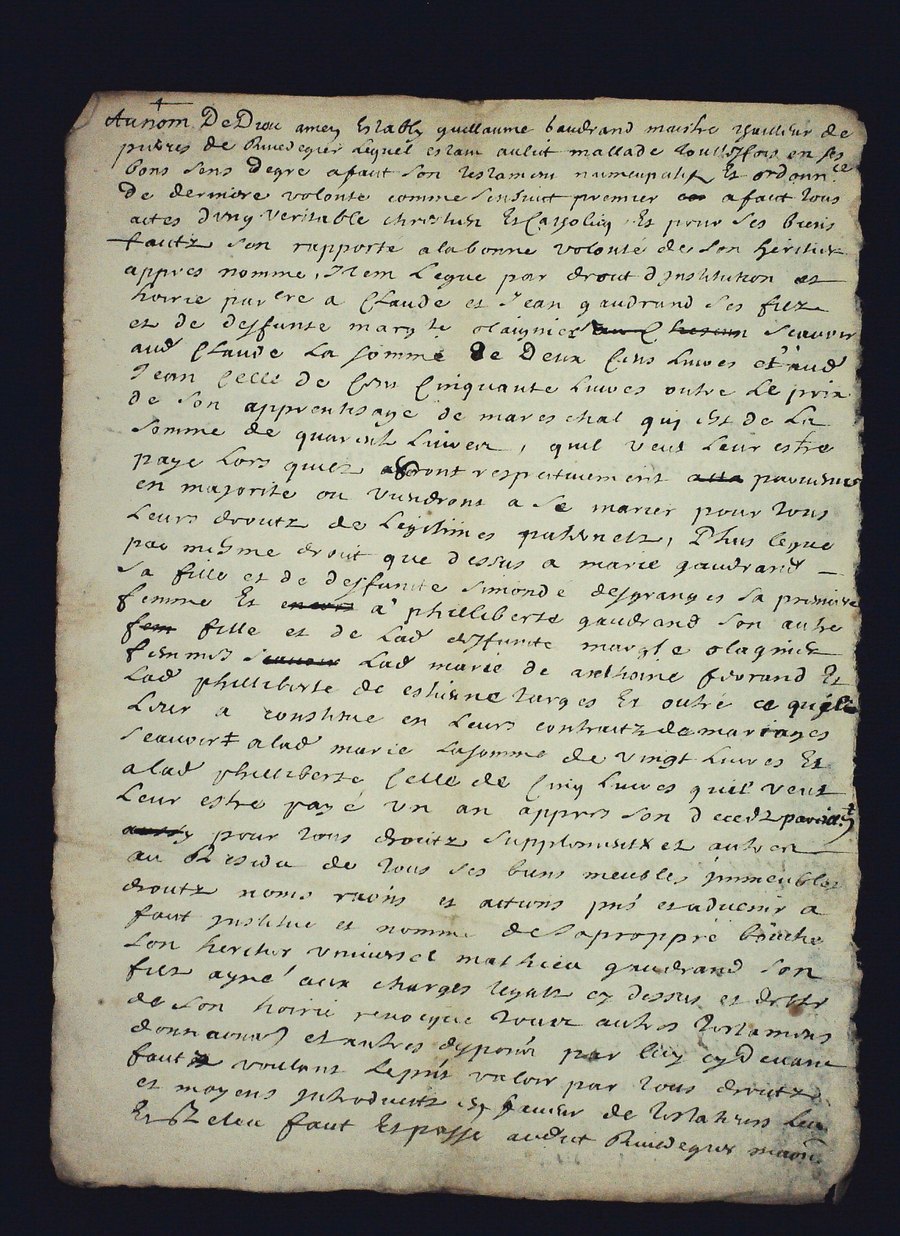 Au nom De Dieu amen Estably guillaume baudrand maistre tailleur de
pierres de Rivedegier Lequel estant au lit mallade touttesfois en ses
bons sens De gre a faict son testament nuncupatif Et ordonnce
De derniere volonte comme sensuit premier a faict tous
actes Dung veritable chrestien Et Catholiq Et pour ses biens
faictz son rapporte a la bonne volonté de son heritier
appres nomme, Item Legue par droit dInstitution et
hoirie par a Claude et Jean gaudrand ses filz
et de deffunte margte olaignier scavoir
aud Claude La somme de Deux Cens Livres et aud
Jean Celle de Cens Cinquante Livres outre Le prix
de son apprentisage de mareschal qui est de La
somme de quarent Livres, quil veut Leur estre
paye Lors quilz seront respectivement parvenus
en majorite ou viendront a se marier pour tous
Leurs droitz de Legitimes paternelz, Plus legue
par mesme droit que dessus a marie gaudrand
sa fille et de deffunte simonde desgranges sa premiere
femme Et a philliberte gaudrand son autre
fille et de Lad deffunte margte olagnier
femmes Lad marie de anthoine fivrand Et
Lad philliberte de estienne targes Et outre ce quil
Leur a constitue en Leurs contraitz de mariages
scavoir a lad marie La somme de vingt Livres Et
a lad philliberte Celle de Cinq Livres quil veut
Leur estre payé un an appres son decedz
pour tous droitz supplementz et autres
au Residu de tous ses biens meubles immeubles
droitz noms raions et actions pnts et advenir a
faict institue et nomme de sa proppre bouche
son heritier universel mathieu gaudrand son
filz ayné aux charges legatz cy dessus et debte
de son hoirie revocque toutz autres testamens
donnaons et autres disposions par luy cy Devant
faitz voulant Le pnt valoir par tous droitz
et moyens introduitz en faveur de testateurs
Et Receu faict Et passe audict Rivedegier maon